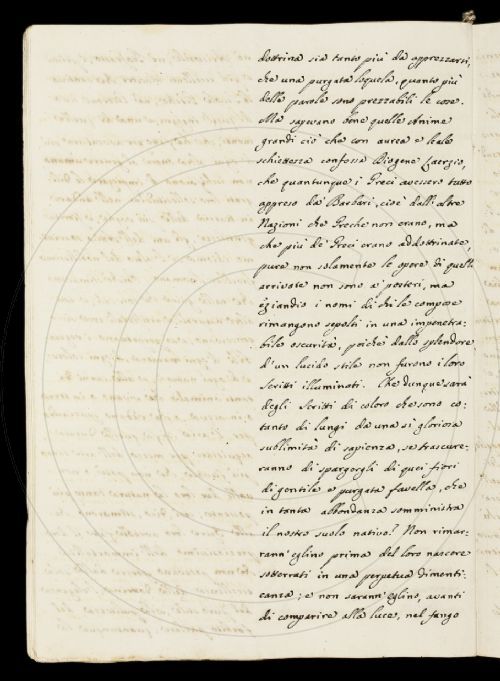 dottrina sia tanto più da apprezzarsi,
che una purgata loquela, quanto più
delle parole sono prezzabili le cose.
Ma sapevano bene quelle Anime
grandi ciò che con aurea e leale
schiettezza confessa Diogene Laerzio,
che quantunque i Greci avessero tutto
appreso da' Barbari, cioè dall'altre
Nazioni che Greche non erano, ma
che più de' Greci erano addottrinate,
pure non solamente le opere di quelle
arrivate non sono a' posteri, ma
eziandio i nomi di chi le compose
rimangono sepolti in una impenetra-
bile oscurità, poiché dallo splendore
d'un lucido stile non furono i loro
scritti illuminati. Che dunque sarà
degli scritti di coloro che sono co-
tanto di lungi da una sì gloriosa
sublimità di sapienza, se trascure-
ranno di spargergli di quei fiori
di gentile e purgata favella, che
in tanta abbondanza somministra
il nostro suolo nativo? Non rimar-
rann'eglino prima del loro nascere
sotterrati in una perpetua dimenti-
canza; e non sarann'eglino, avanti
di comparire alla luce, nel fango